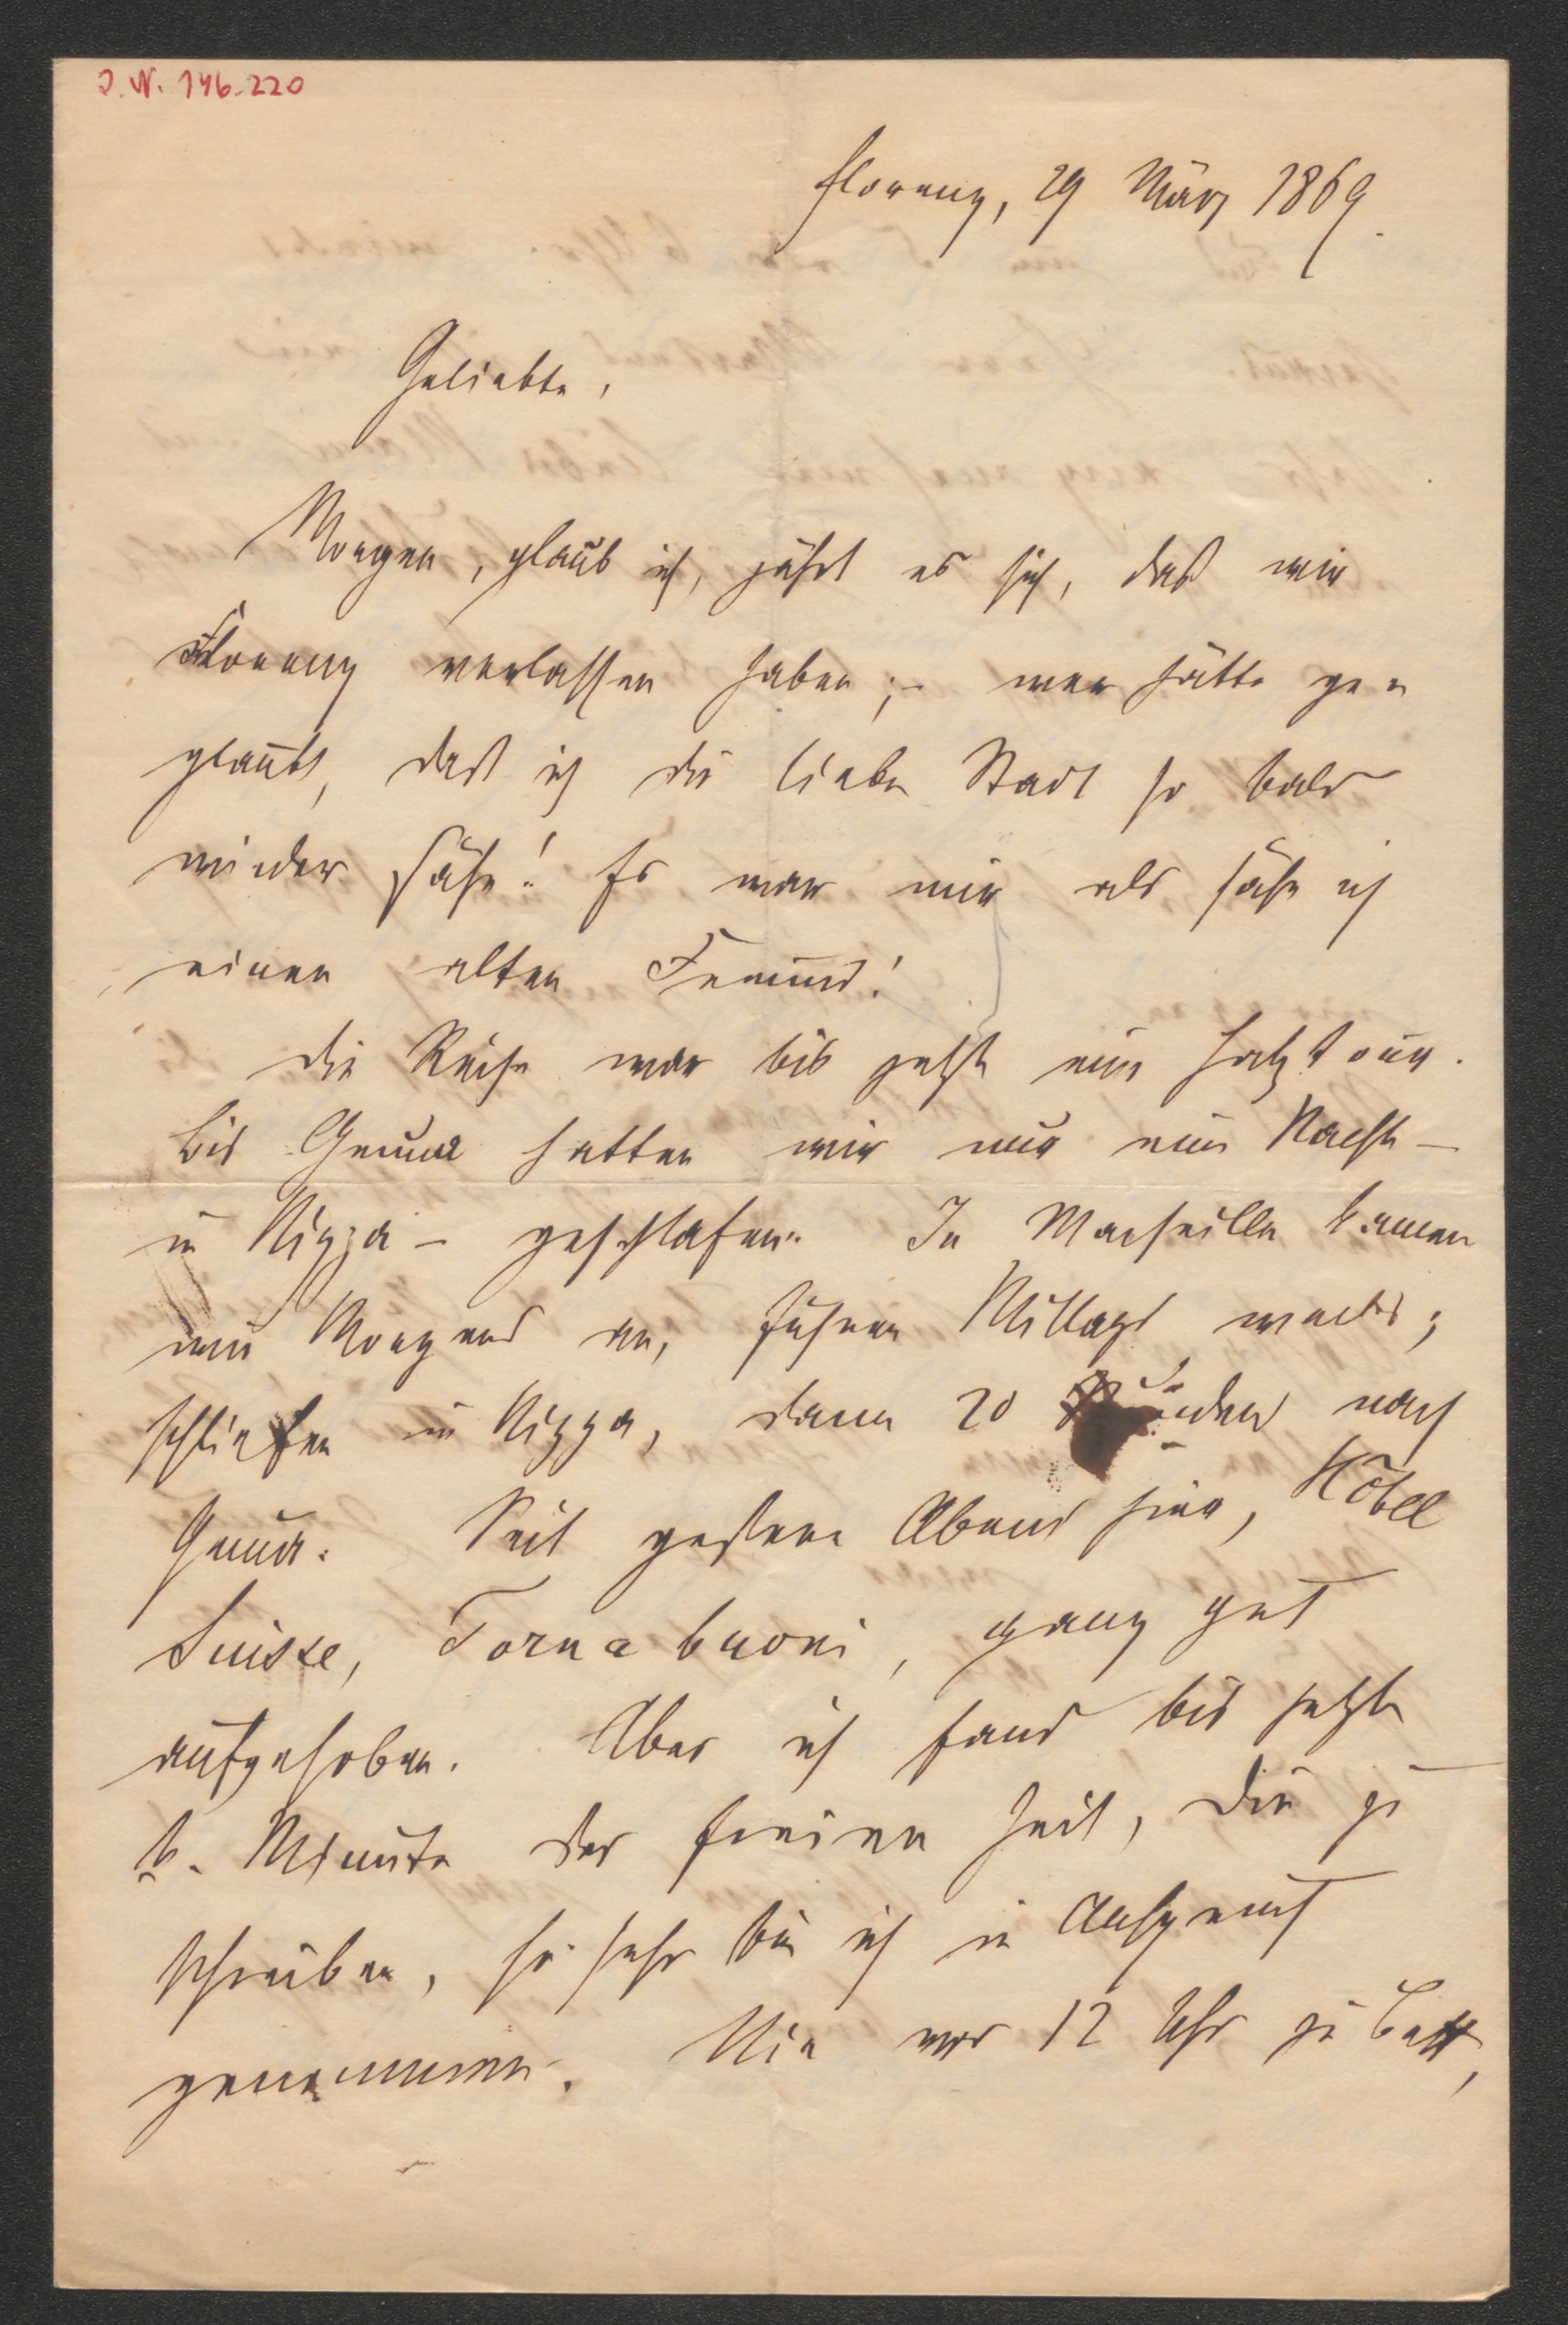 J.N. 146.220
Florenz, 29 März 1869.
Geliebte,
Morgen, glaub ich, jährt es sich, daß wir
Florenz verlassen haben; – wer hätte ge-
glaubt, daß ich die liebe Stadt so bald
wieder sähe! Es war mir als sähe ich
einen alten Freund!
Die Reise war bis jetzt eine Hetztour.
Bis Genua hatten wir nur eine Nacht –
in Nizza – geschlafen. In Marseille kamen
wir Morgens an, fuhren Mittags weiter;
schliefen in Nizza, dann 20 Stunden nach
Genua. Seit gestern Abend hier, Hôtel
Suisse, Tornabuoni, ganz gut
aufgehoben. Aber ich fand bis jetzt
k. Minute der freien Zeit, Dir zu
schreiben, so sehr bin ich in Anspruch
genommen. Nie vor 12 Uhr zu Bett,